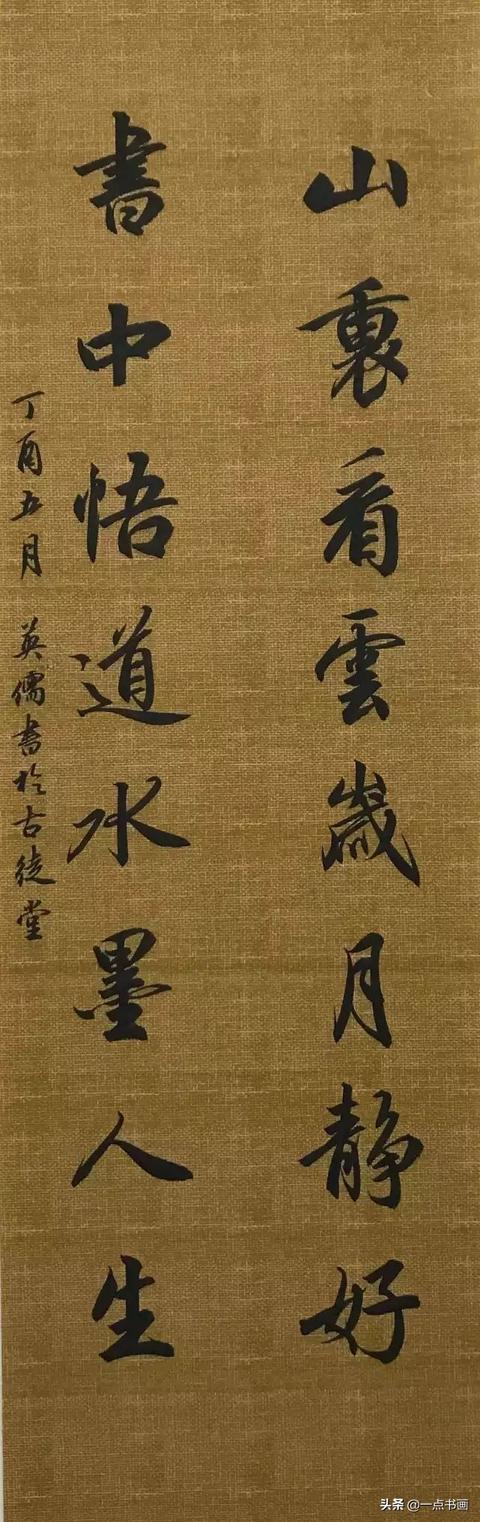 山裏看雲歲月静好
書中悟道水墨人生
丁酉五月 英儒書於古徒堂
头条 @一点书画